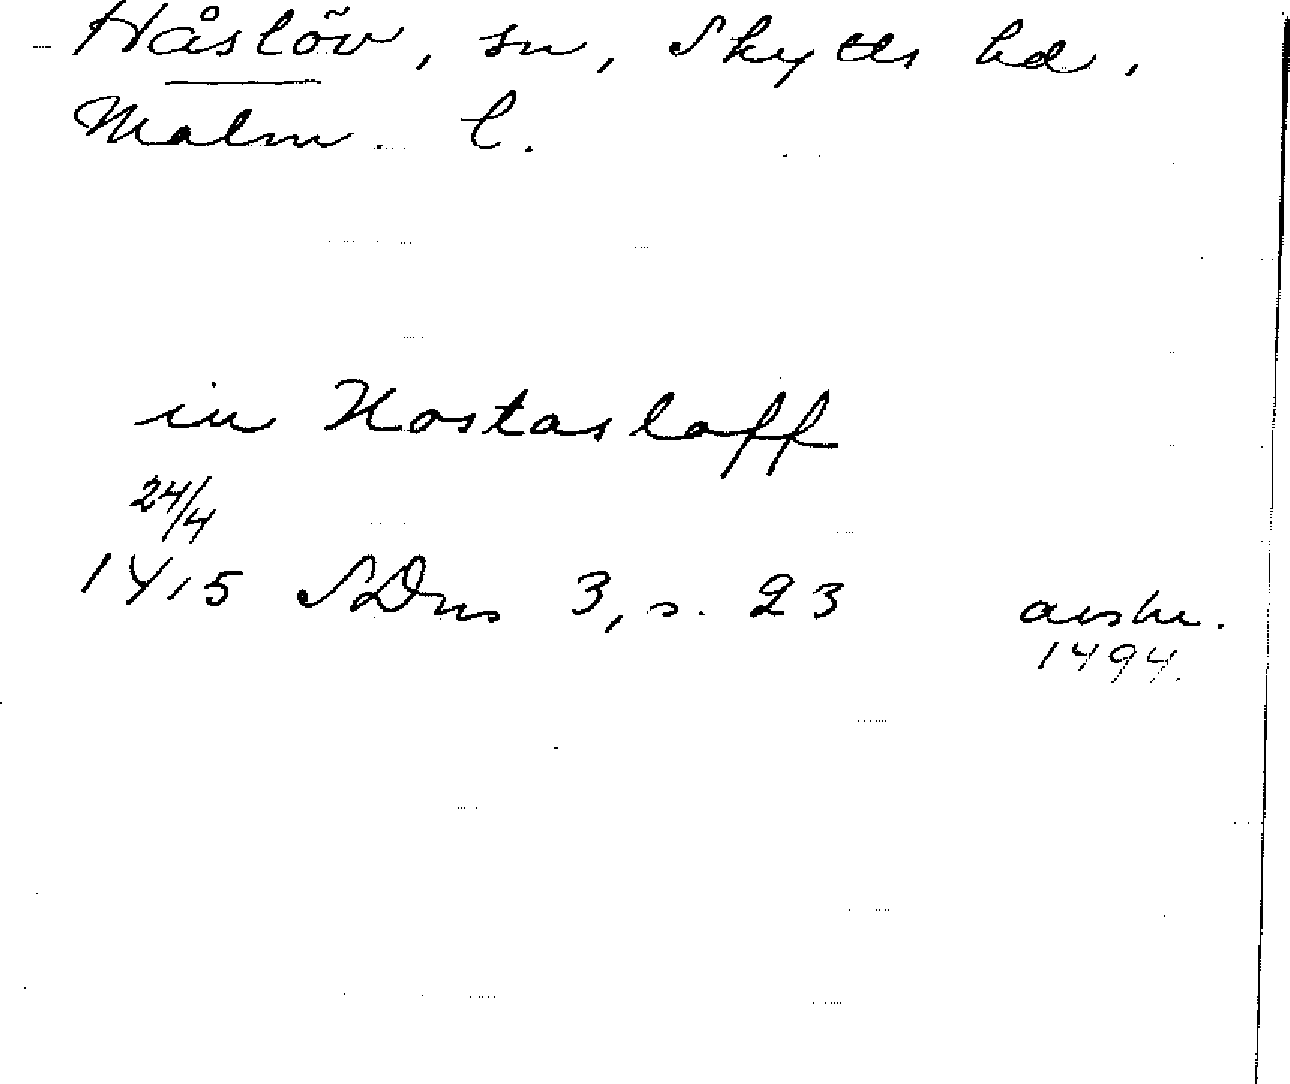 Håslöv, sn, Skytts hd,
Malm. l.
in Hostasloff
24/4
1415 SDns 3, s. 23 avskr.
1494.